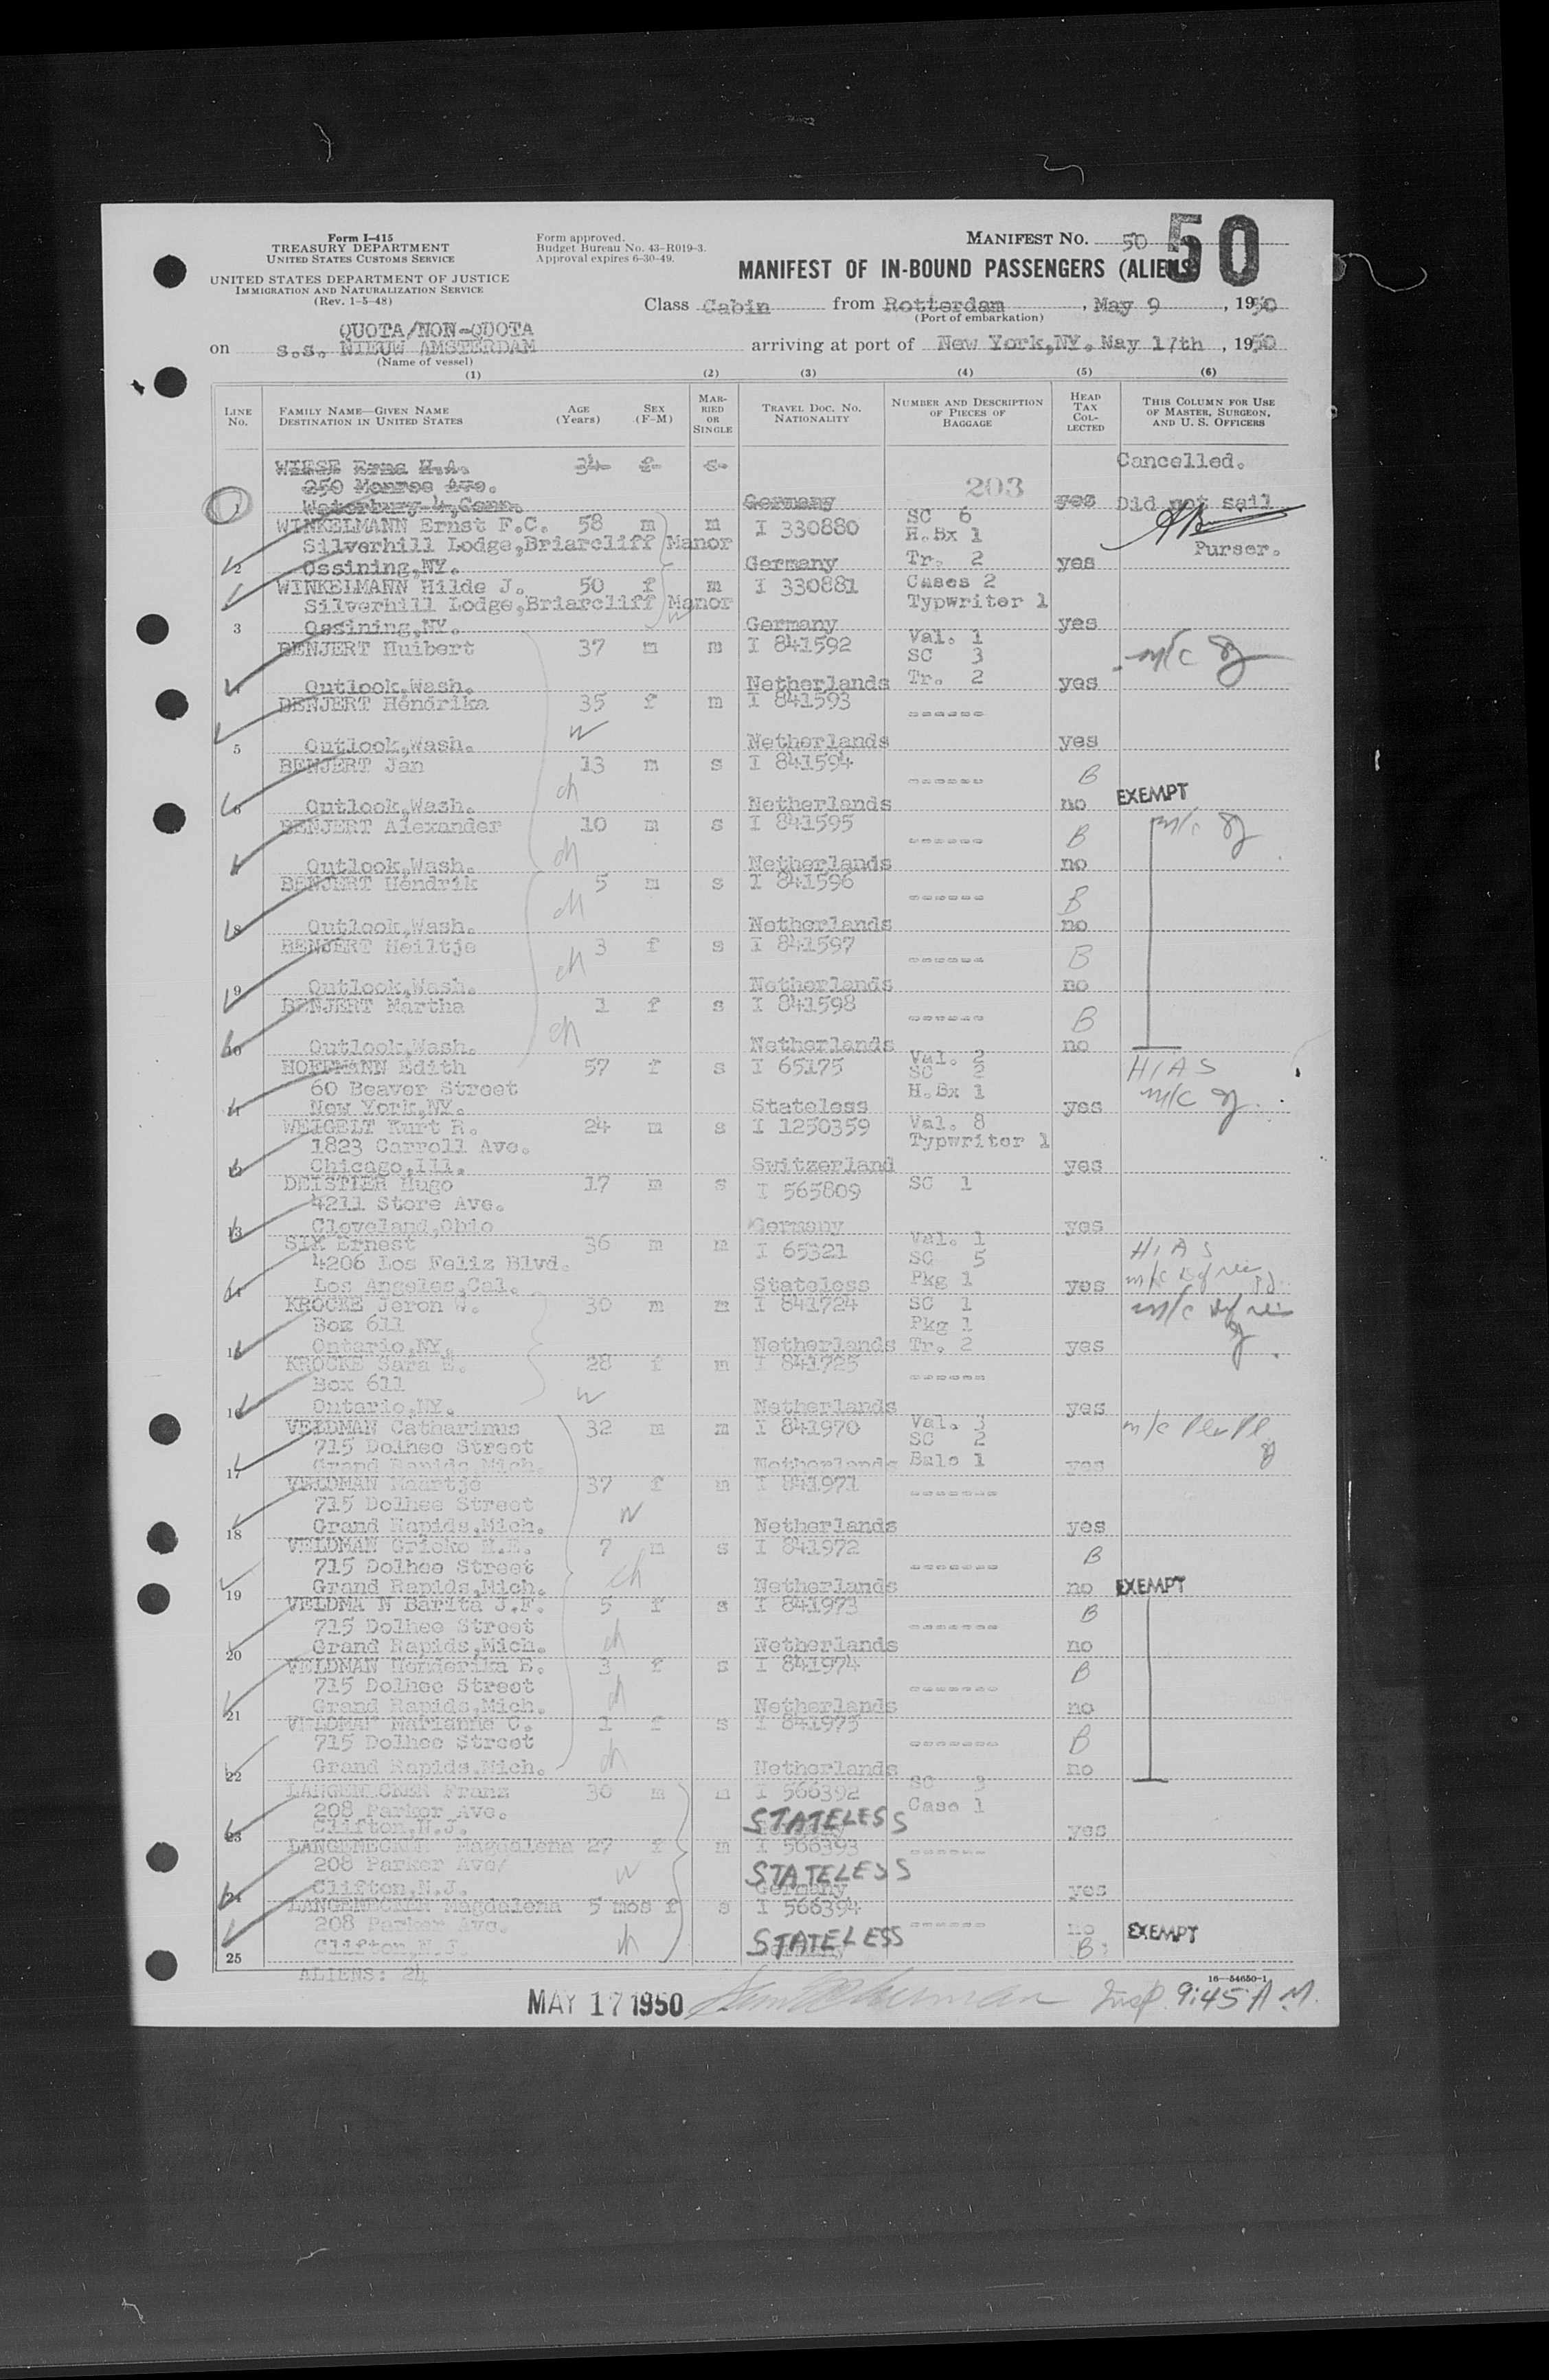 Form I-415
TREASURY DEPARTMENT
UNITED STATES CUSTOMS SERVICE
UNITED STATES DEPARTMENT OF JUSTICE
IMMIGRATION AND NATURALIZATION SERVICE
(Rev. 1-5-48)
Form approved.
Budget Bureau No. 43-R019-3.
Approval expires 6-30-49.
MANIFEST NO. 50
50
MANIFEST OF IN-BOUND PASSENGERS (ALIENS)
Class Cabin from Rotterdam, May 9, 1950
(Port of embarkation)
QUOTA/NON-QUOTA
on s.s. NIEUW AMSTERDAM arriving at port of New York,NY. May 17th, 1950
(Name of vessel)
(1) (2) (3) (4) (5) (6)
LINE No. FAMILY NAME—GIVEN NAME DESTINATION IN UNITED STATES AGE (Years) SEX (F-M) MARRIED OR SINGLE TRAVEL DOC. NO. NATIONALITY NUMBER AND DESCRIPTION OF PIECES OF BAGGAGE HEAD TAX COLLECTED THIS COLUMN FOR USE OF MASTER, SURGEON, AND U. S. OFFICERS
WIESE Erna H.A. 34 f s Cancelled.
250 Monroe Ave. 203
1 Waterbury 4,Conn. Germany yes Did not sail
WINKELMANN Ernst F.C. 58 m m I 330880 SC 6
Silverhill Lodge,Briarcliff Manor H.Bx 1 Purser.
2 Ossining,NY. Germany Tr. 2 yes
WINKELMANN Hilde J. 50 f m I 330881 Cases 2
Silverhill Lodge,Briarcliff Manor Typwriter 1
3 Ossining,NY. w Germany yes
BENJERT Huibert 37 m m I 841592 Val. 1
SC 3 m/c
4 Outlook,Wash. Netherlands Tr. 2 yes
BENJERT Hendrika 35 f m I 841593 ------
w
5 Outlook,Wash. Netherlands yes
BENJERT Jan 13 m s I 841594 ------ B
ch
6 Outlook,Wash. Netherlands no EXEMPT
BENJERT Alexander 10 m s I 841595 ------ B m/c
ch
Outlook,Wash. Netherlands no
BENJERT Hendrik 5 m s I 841596 ------ B
ch
8 Outlook,Wash. Netherlands no
BENJERT Heiltje 3 f s I 841597 ------ B
ch
9 Outlook,Wash. Netherlands no
BENJERT Martha 1 f s I 841598 ------ B
ch
10 Outlook,Wash. Netherlands no
HOFFMANN Edith 57 f s I 65175 Val. 2 HIAS
SC 2
60 Beaver Street H.Bx 1 m/c
11 New York,NY. Stateless yes
WEIGELT Kurt R. 24 m s I 1250359 Val. 8
1823 Carroll Ave. Typwriter 1
12 Chicago,Ill. Switzerland yes
DEISTLER Hugo 17 m s I 565809 SC 1
4211 Store Ave.
13 Cleveland,Ohio Germany yes
SIM Ernest 36 m m I 65321 Val. 1 HIAS
4206 Los Feliz Blvd. SC 5 m/c
14 Los Angeles,Cal. Stateless Pkg 1 yes
KROCKE Jeron W. 30 m m I 841724 SC 1 m/c
Box 611 Pkg 1
15 Ontario,NY. Netherlands Tr. 2 yes
KROCKE Sara E. 28 f m I 841725 ------
Box 611 w
16 Ontario,NY. Netherlands yes
VELDMAN Catharinus 32 m m I 841970 Val. 3 m/c
715 Dolhee Street SC 2
17 Grand Rapids,Mich. Netherlands Bale 1 yes
VELDMAN Maartje 37 f m I 841971 -------
715 Dolhee Street w
18 Grand Rapids,Mich. Netherlands yes
VELDMAN Grieke M.E. 7 m s I 841972 ------- B
715 Dolhee Street ch
19 Grand Rapids,Mich. Netherlands no EXEMPT
VELDMA N Barita J.F. 5 f s I 841973 ------- B
715 Dolhee Street ch
20 Grand Rapids,Mich. Netherlands no
VELDMAN Henderika E. 3 f s I 841974 ------- B
715 Dolhee Street ch
21 Grand Rapids,Mich. Netherlands no
VELDMAN Marianne C. 1 f s I 841975 ------- B
715 Dolhee Street ch
22 Grand Rapids,Mich. Netherlands no
LANGENECKER Franz 30 m m I 566392 SC 3
208 Parker Ave. STATELESS Case 1
23 Clifton,N.J. yes
LANGENECKER Magdalena 27 f m I 566393 ------
208 Parker Ave/ w STATELESS
24 Clifton,N.J. Germany yes
LANGENECKER Magdalena 5 mos f s I 566394 ------
208 Parker Ave. no EXEMPT
25 Clifton,N.J. ch STATELESS B
ALIENS: 24
16—54650-1
MAY 17 1950 Insp. 9:45 A.M.